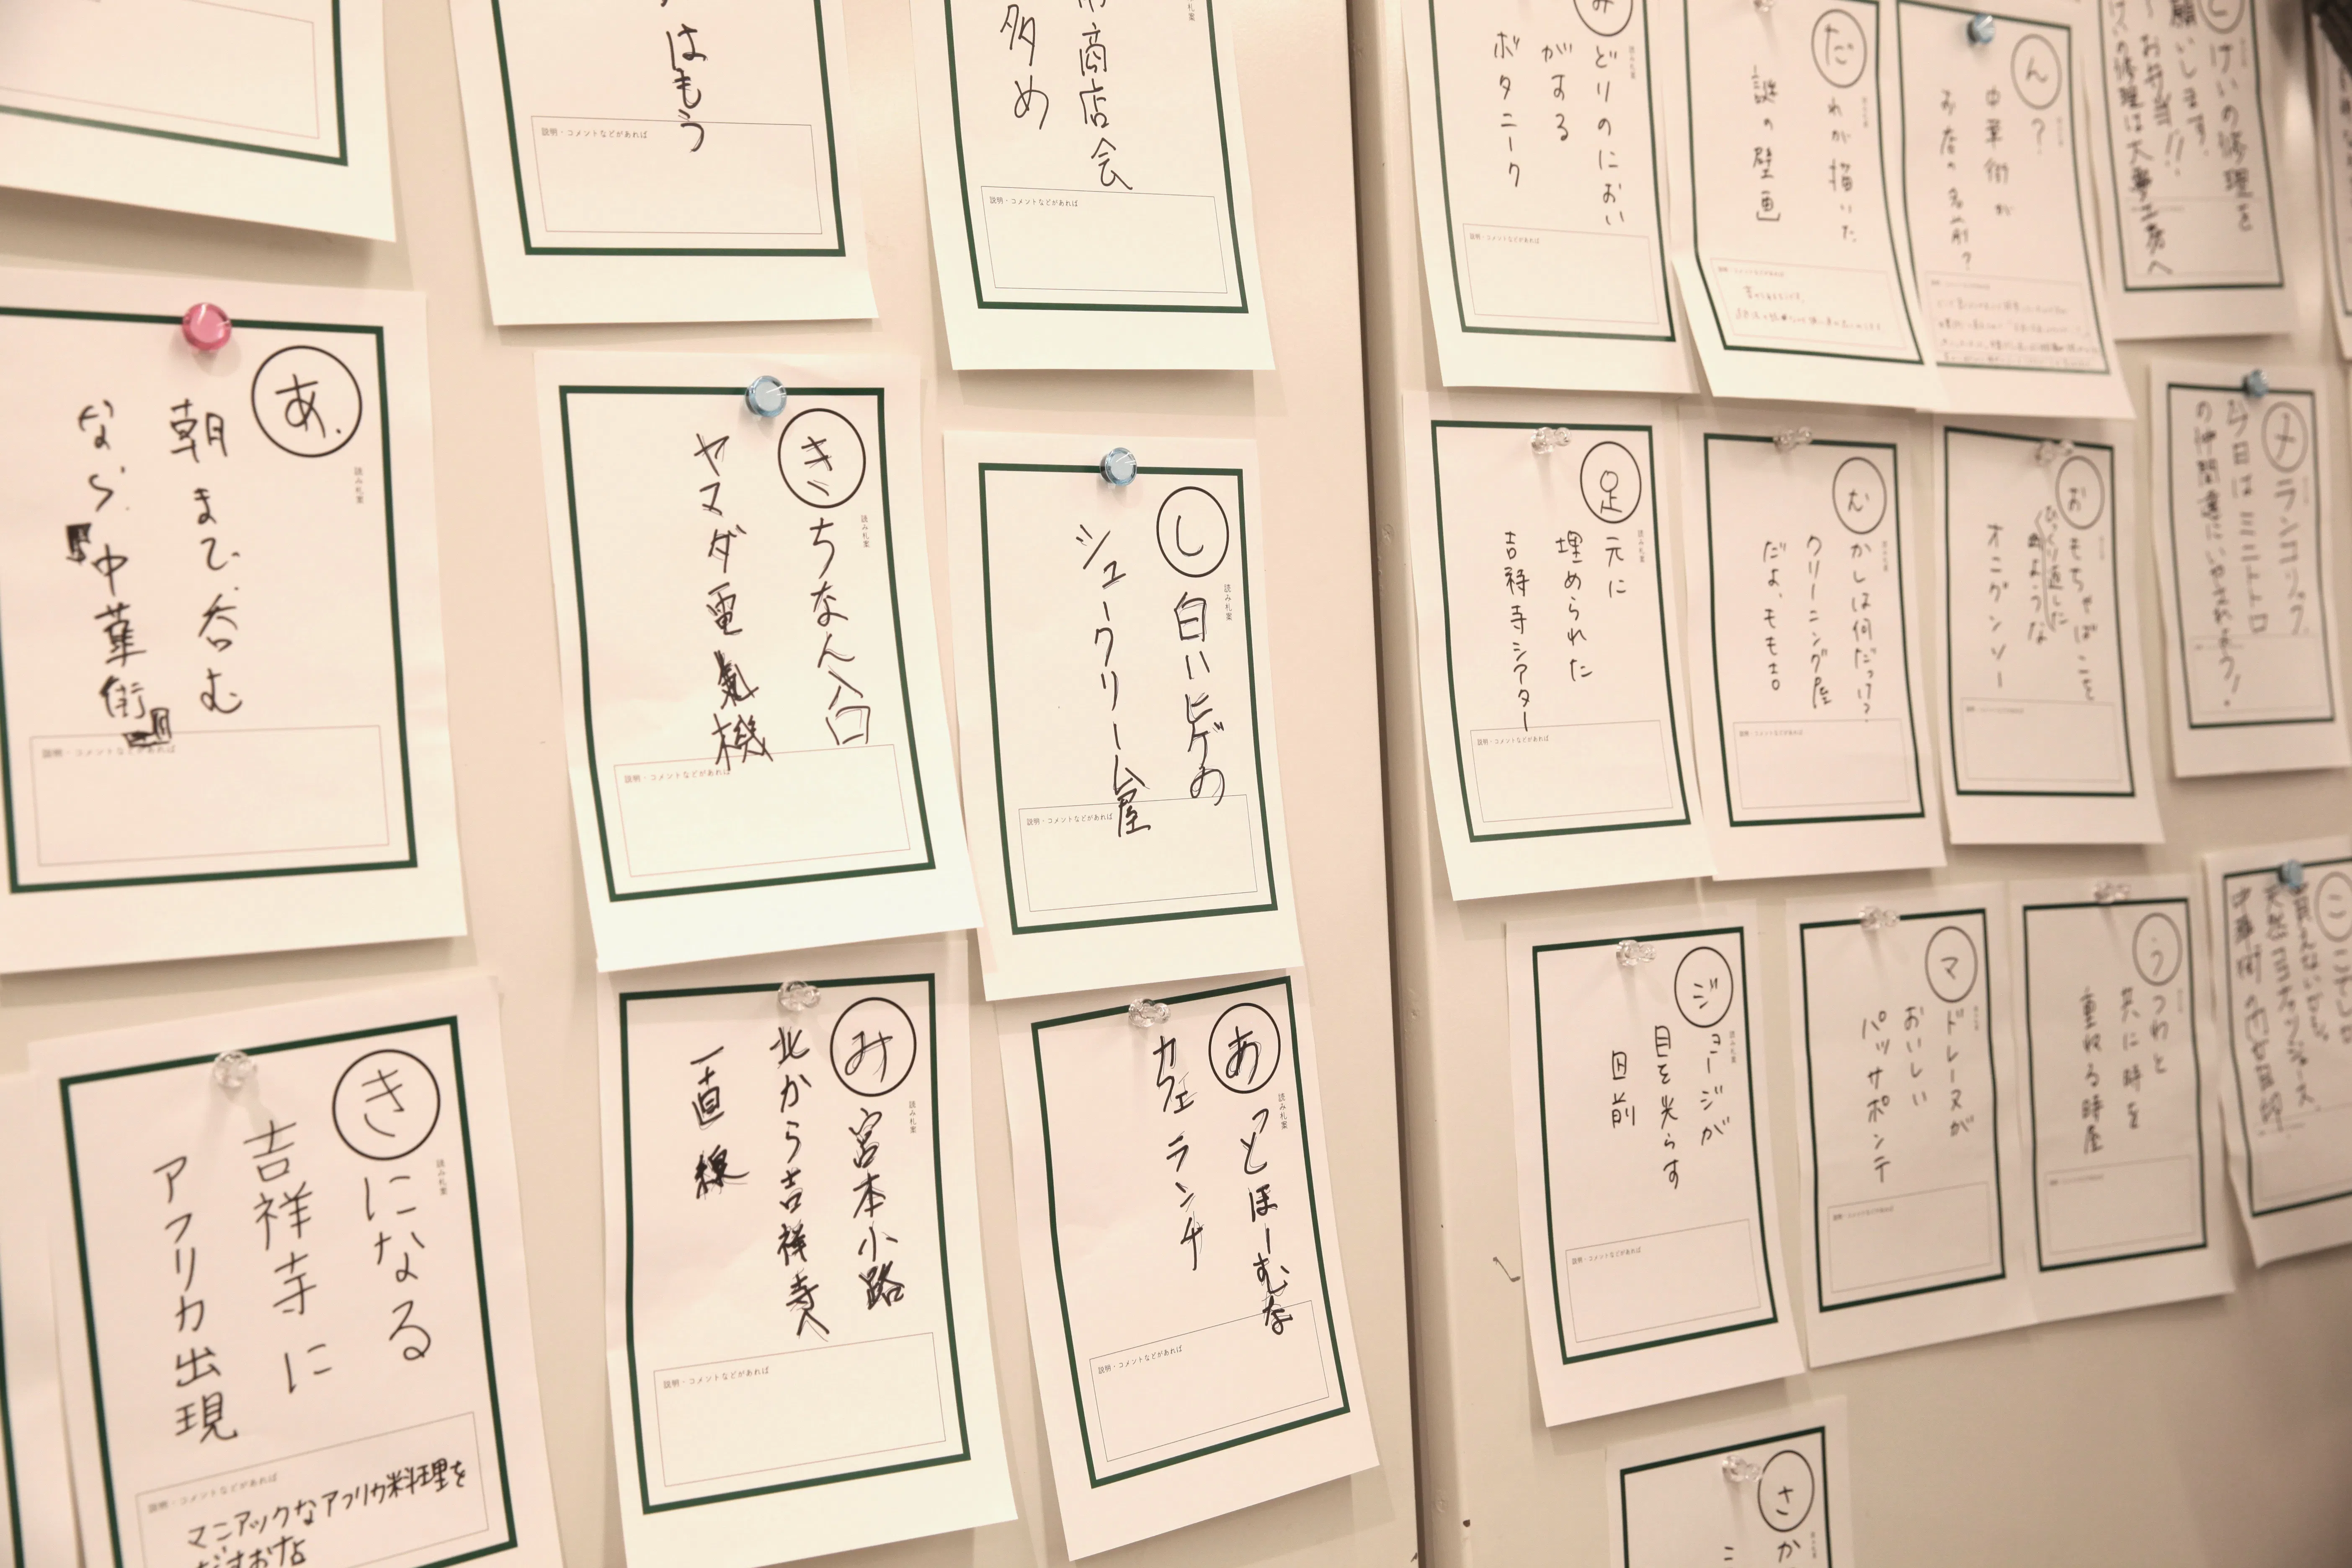 はもう
説明・コメントなどがあれば
商店会
多め
説明・コメントなどがあれば
あ.
読み札案
朝まで呑む
なら.中華街
説明・コメントなどがあれば
き
読み札案
ちなん入口
ヤマダ電気機
説明・コメントなどがあれば
し
読み札案
白いヒゲの
シュークリーム屋
説明・コメントなどがあれば
き
読み札案
になる
吉祥寺に
アフリカ出現
説明・コメントなどがあれば
マニアックなアフリカ料理を
だすお店
み
読み札案
宮本小路
北から吉祥寺へ
一直線
説明・コメントなどがあれば
あ
読み札案
っとほーむな
カフェランチ
説明・コメントなどがあれば
み
読み札案
どりのにおい
がする
ボタニーク
説明・コメントなどがあれば
だ
れが描いた
謎の壁画
ん
?
中華街が
お店の名前?
けいの修理を
願いします。
お弁当!!
足
読み札案
元に
埋められた
吉祥寺シアター
説明・コメントなどがあれば
む
読み札案
かしは何だっけ?
クリーニング屋
だよ、もも吉。
説明・コメントなどがあれば
お
もちゃばこを
ひっくり返した
ような
オニグンソー
メ
ランコリック
今日はミニトトロ
ジ
読み札案
ョージが
目を光らす
図前
説明・コメントなどがあれば
マ
読み札案
ドレーヌが
おいしい
パッサポンテ
説明・コメントなどがあれば
う
つわと
共に時を
重ねる時屋
こ
さ
読み札案
か